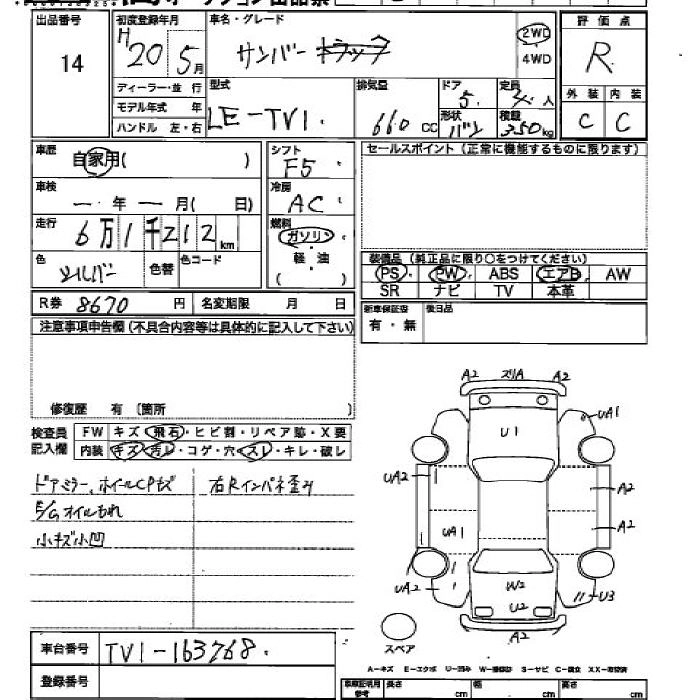 出品番号 14
初度登録年月 H20 5月
車名・グレード サンバー トラック
2WD・4WD
評価点 R
外装 C 内装 C
ディーラー・並行
モデル年式 年
ハンドル 左・右
型式 LE-TV1
排気量 660 cc
ドア 5
形状 バン
定員 4 人
積載 350kg
車歴 自家用( )
シフト F5
セールスポイント(正常に機能するものに限ります)
車検 ー・年 ー 月( 日)
冷房 AC
走行 6万1千212km
燃料 ガソリン・軽・油 ( )
色 シルバー 色替 色コード
装備品(純正品に限り○をつけてください)
PS PW ABS エアB AW
SR ナビ TV 本革
R券 8670 円 名変期限 月 日
新車保証書 有・無
後日品
注意事項申告欄(不具合内容等は具体的に記入して下さい)
修復歴 有 (箇所 )
検査員記入欄
FW キズ・飛石・ヒビ割・リペア跡・X要
内装 キズ・汚レ・コゲ・穴・スレ・キレ・破レ
ドアミラー、ホイールCPキズ
右Rインパネ歪み
E/Gオイルもれ
小キズ小凹
A2 スリA A2
U1
UA1
UA2
A2
A2
UA1
UA2
W2
U2
U3
A2
スペア
車台番号 TV1-163768
登録番号
A-キズ E-エクボ U-凹み W-補修跡 S-サビ C-腐食 XX-交換済
車庫証明用参考 長さ cm 幅 cm 高さ cm